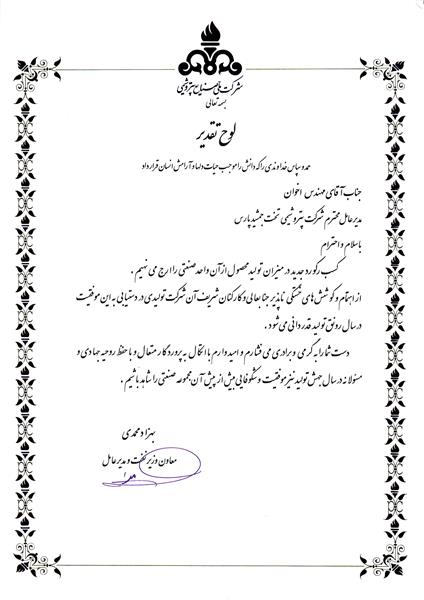 شرکت ملی صنایع پتروشیمی
بسمه تعالی
لوح تقدیر
حمد و سپاس خداوندی را که دانش را موجب حیات دلها و آرامش انسان قرار داد
جناب آقای مهندس اخوان
مدیرعامل محترم شرکت پتروشیمی تخت جمشید پارس
با سلام و احترام
کسب رکورد جدید در میزان تولید محصول از آن واحد صنعتی را ارج می نهیم .
از اهتمام و کوشش های خستگی ناپذیر جنابعالی و کارکنان شریف آن شرکت تولیدی در دستیابی به این موفقیت
در سال رونق تولید قدردانی می شود .
دست شما را به گرمی و برادری می فشارم و امیدوارم با اتکال به پروردگار متعال و با حفظ روحیه جهادی و
مسئولانه در سال جهش تولید نیز موفقیت و شکوفایی بیش از پیش آن مجموعه صنعتی را شاهد باشیم .
بهزاد محمدی
معاون وزیر نفت و مدیرعامل